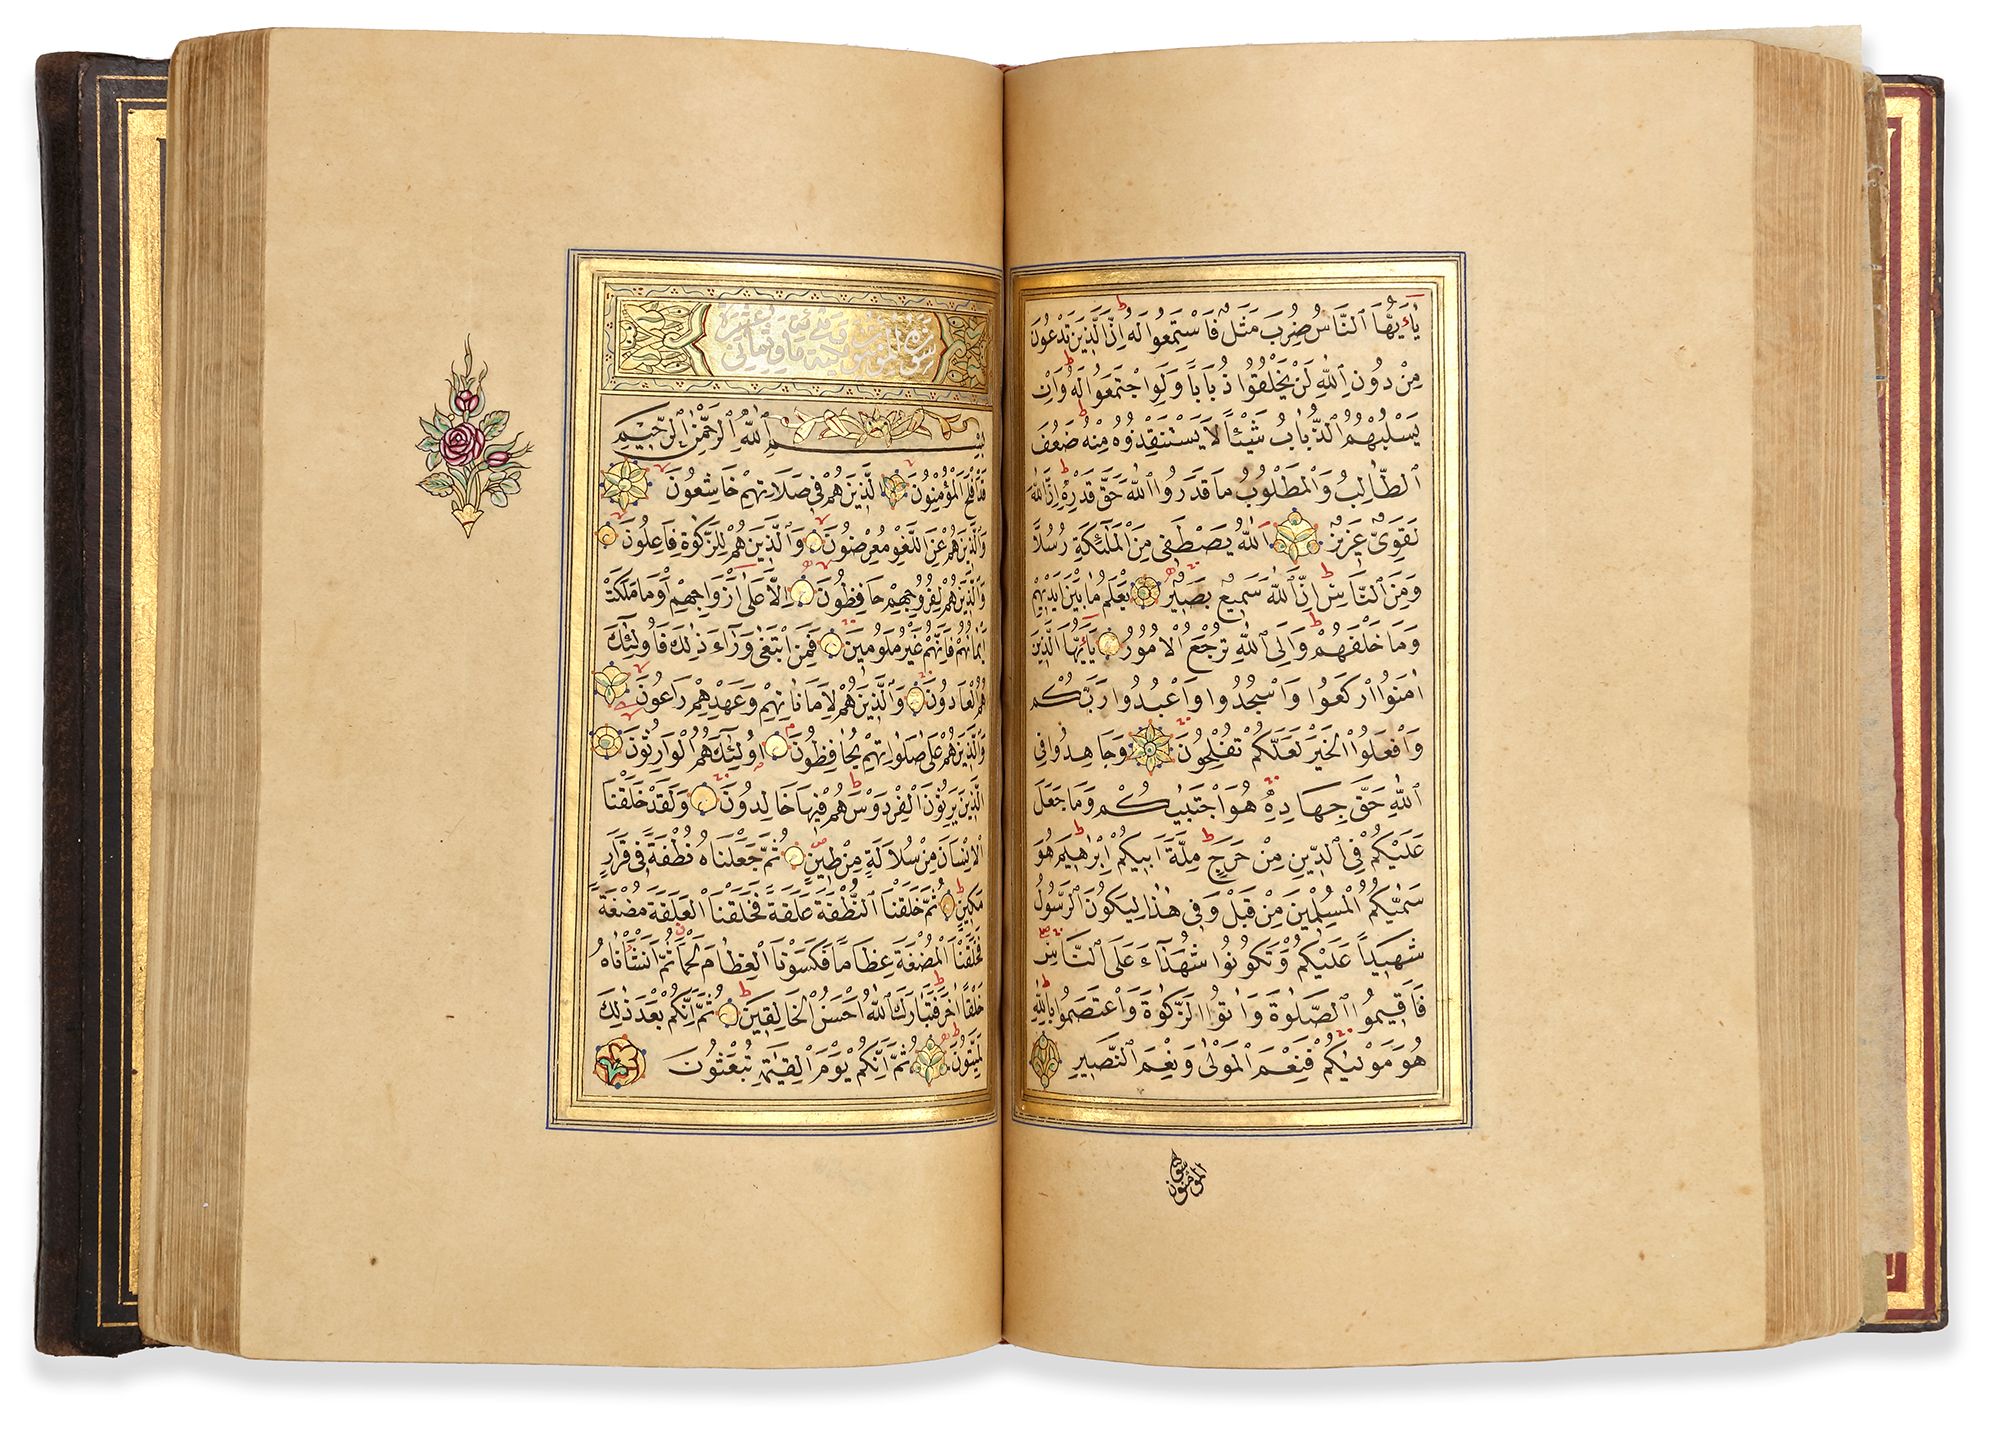 يَآءَيُّهَا ٱلنَّاسُ ضُرِبَ مَثَلٌ فَاسْتَمِعُوا لَهُ اِنَّ ٱلَّذِينَ تَدْعُونَ
مِنْ دُونِ ٱللّٰهِ لَنْ يَخْلُقُوا ذُبَاباً وَلَوِاجْتَمَعُوا لَهُ وَاِنْ
يَسْلُبْهُمُ ٱلذُّبَابُ شَيْئاً لَا يَسْتَنْقِذُوهُ مِنْهُ ضَعُفَ
ٱلطَّالِبُ وَالْمَطْلُوبُ مَا قَدَرُوا ٱللّٰهَ حَقَّ قَدْرِهِ اِنَّ ٱللّٰهَ
لَقَوِىٌّ عَزِيزٌ اَللّٰهُ يَصْطَفِى مِنَ الْمَلٰٓئِكَةِ رُسُلاً
وَمِنَ ٱلنَّاسِ اِنَّ ٱللّٰهَ سَمِيعٌ بَصِيرٌ يَعْلَمُ مَا بَيْنَ اَيْدِيهِمْ
وَمَا خَلْفَهُمْ وَاِلَى ٱللّٰهِ تُرْجَعُ الْاُمُورُ يَآءَيُّهَا ٱلَّذِينَ
اٰمَنُوا ارْكَعُوا وَاسْجُدُوا وَاعْبُدُوا رَبَّكُمْ
وَافْعَلُوا الْخَيْرَ لَعَلَّكُمْ تُفْلِحُونَ وَجَاهِدُوا فِى
ٱللّٰهِ حَقَّ جِهَادِهِ هُوَ اجْتَبٰيكُمْ وَمَا جَعَلَ
عَلَيْكُمْ فِى ٱلدِّينِ مِنْ حَرَجٍ مِلَّةَ اَبِيكُمْ اِبْرٰهِيمَ هُوَ
سَمّٰيكُمُ الْمُسْلِمِينَ مِنْ قَبْلُ وَفِى هٰذَا لِيَكُونَ ٱلرَّسُولُ
شَهِيداً عَلَيْكُمْ وَتَكُونُوا شُهَدَآءَ عَلَى ٱلنَّاسِ
فَاَقِيمُوا ٱلصَّلٰوةَ وَاٰتُوا ٱلزَّكٰوةَ وَاعْتَصِمُوا بِاللّٰهِ
هُوَ مَوْلٰيكُمْ فَنِعْمَ الْمَوْلٰى وَنِعْمَ ٱلنَّصِيرُ
سورة المؤمنون
بِسْمِ ٱللّٰهِ ٱلرَّحْمٰنِ ٱلرَّحِيمِ
قَدْ اَفْلَحَ الْمُؤْمِنُونَ اَلَّذِينَ هُمْ فِى صَلَاتِهِمْ خَاشِعُونَ
وَٱلَّذِينَ هُمْ عَنِ ٱللَّغْوِ مُعْرِضُونَ وَٱلَّذِينَ هُمْ لِلزَّكٰوةِ فَاعِلُونَ
وَٱلَّذِينَ هُمْ لِفُرُوجِهِمْ حَافِظُونَ اِلَّا عَلٰٓى اَزْوَاجِهِمْ اَوْ مَا مَلَكَتْ
اَيْمَانُهُمْ فَاِنَّهُمْ غَيْرُ مَلُومِينَ فَمَنِ ابْتَغٰى وَرَآءَ ذٰلِكَ فَاُولٰٓئِكَ
هُمُ الْعَادُونَ وَٱلَّذِينَ هُمْ لِاَمَانَاتِهِمْ وَعَهْدِهِمْ رَاعُونَ
وَٱلَّذِينَ هُمْ عَلٰى صَلَوَاتِهِمْ يُحَافِظُونَ اُولٰٓئِكَ هُمُ الْوَارِثُونَ
اَلَّذِينَ يَرِثُونَ الْفِرْدَوْسَ هُمْ فِيهَا خَالِدُونَ وَلَقَدْ خَلَقْنَا
الْاِنْسَانَ مِنْ سُلَالَةٍ مِنْ طِينٍ ثُمَّ جَعَلْنَاهُ نُطْفَةً فِى قَرَارٍ
مَكِينٍ ثُمَّ خَلَقْنَا ٱلنُّطْفَةَ عَلَقَةً فَخَلَقْنَا الْعَلَقَةَ مُضْغَةً
فَخَلَقْنَا الْمُضْغَةَ عِظَاماً فَكَسَوْنَا الْعِظَامَ لَحْماً ثُمَّ اَنْشَأْنَاهُ
خَلْقاً اٰخَرَ فَتَبَارَكَ ٱللّٰهُ اَحْسَنُ الْخَالِقِينَ ثُمَّ اِنَّكُمْ بَعْدَ ذٰلِكَ
لَمَيِّتُونَ ثُمَّ اِنَّكُمْ يَوْمَ الْقِيٰمَةِ تُبْعَثُونَ